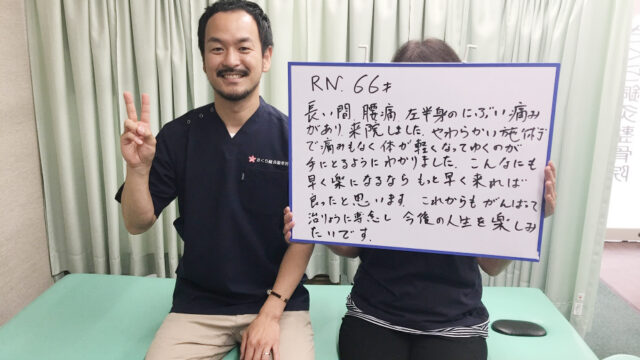 R.N. 66才
長い間 腰痛 左半身のにぶい痛み
があり、来院しました。やわらかい施術
で痛みもなく体が軽くなってゆくのが
手にとるようにわかりました。こんなにも
早く楽になるなら もっと早く来れば
良ったと思います。これからも がんばって
治りょうに専念し 今後の人生を楽しみ
たいです。
さくら鍼灸整骨院
鍼灸整骨院